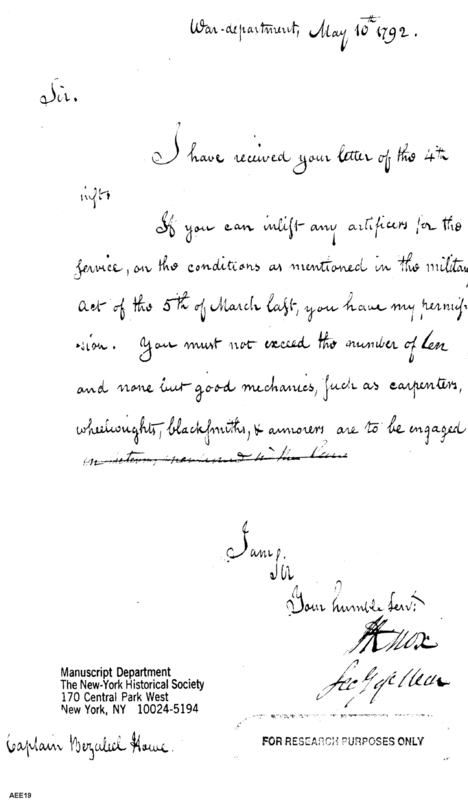 War-department, May 10th 1792.
Sir.
I have received your letter of the 4th
inst.
If you can inlist any artificers for the
service, on the conditions as mentioned in the military
Act of the 5th of March last, you have my permis-
-sion. You must not exceed the number of ten
and none but good mechanics, such as carpenters,
wheelwrights, blacksmiths, & armorers are to be engaged
I am,
Sir
Your humble Servt.
HKnox
Secy of War
Manuscript Department
The New-York Historical Society
170 Central Park West
New York, NY 10024-5194
FOR RESEARCH PURPOSES ONLY
Captain Bezaleel Howe.
AEE19